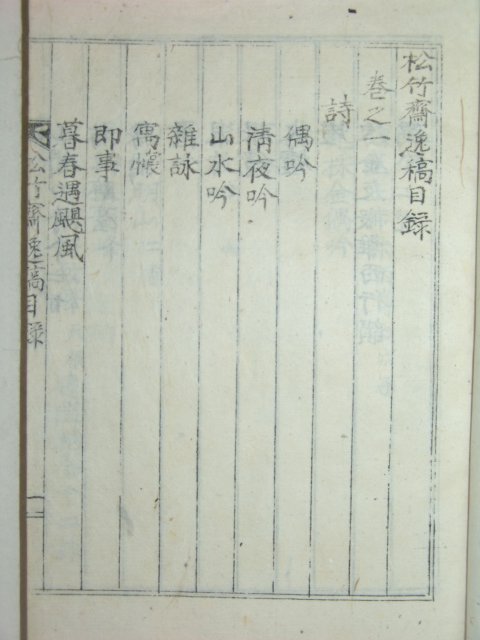 松竹齋逸稿目録
卷之一
詩
偶吟
淸夜吟
山水吟
雜詠
寓懷
即事
暮春遇颶風
松竹齋逸稿目録
一